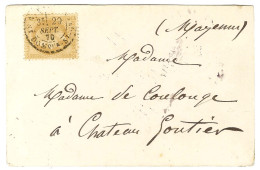 (Mayenne)
SEPT
70
Madame
Madame de Coulonge
à Chateau Gontier